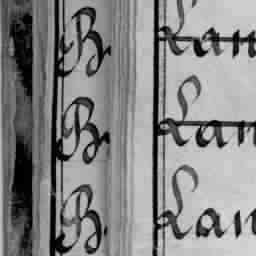 B. Lan
B. Lan
B. Lan